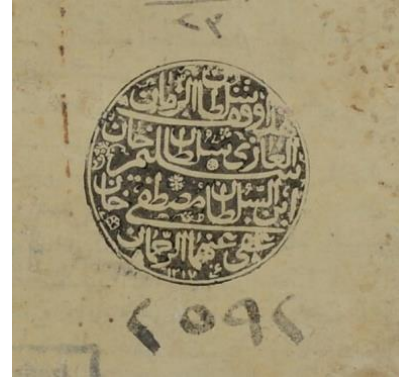 هذا وقف سلطان الزمان
الغازي سلطان سليم خان
ابن السلطان مصطفى خان
عفى عنهما الرحمن
١٢١٧
٢٥٩٢